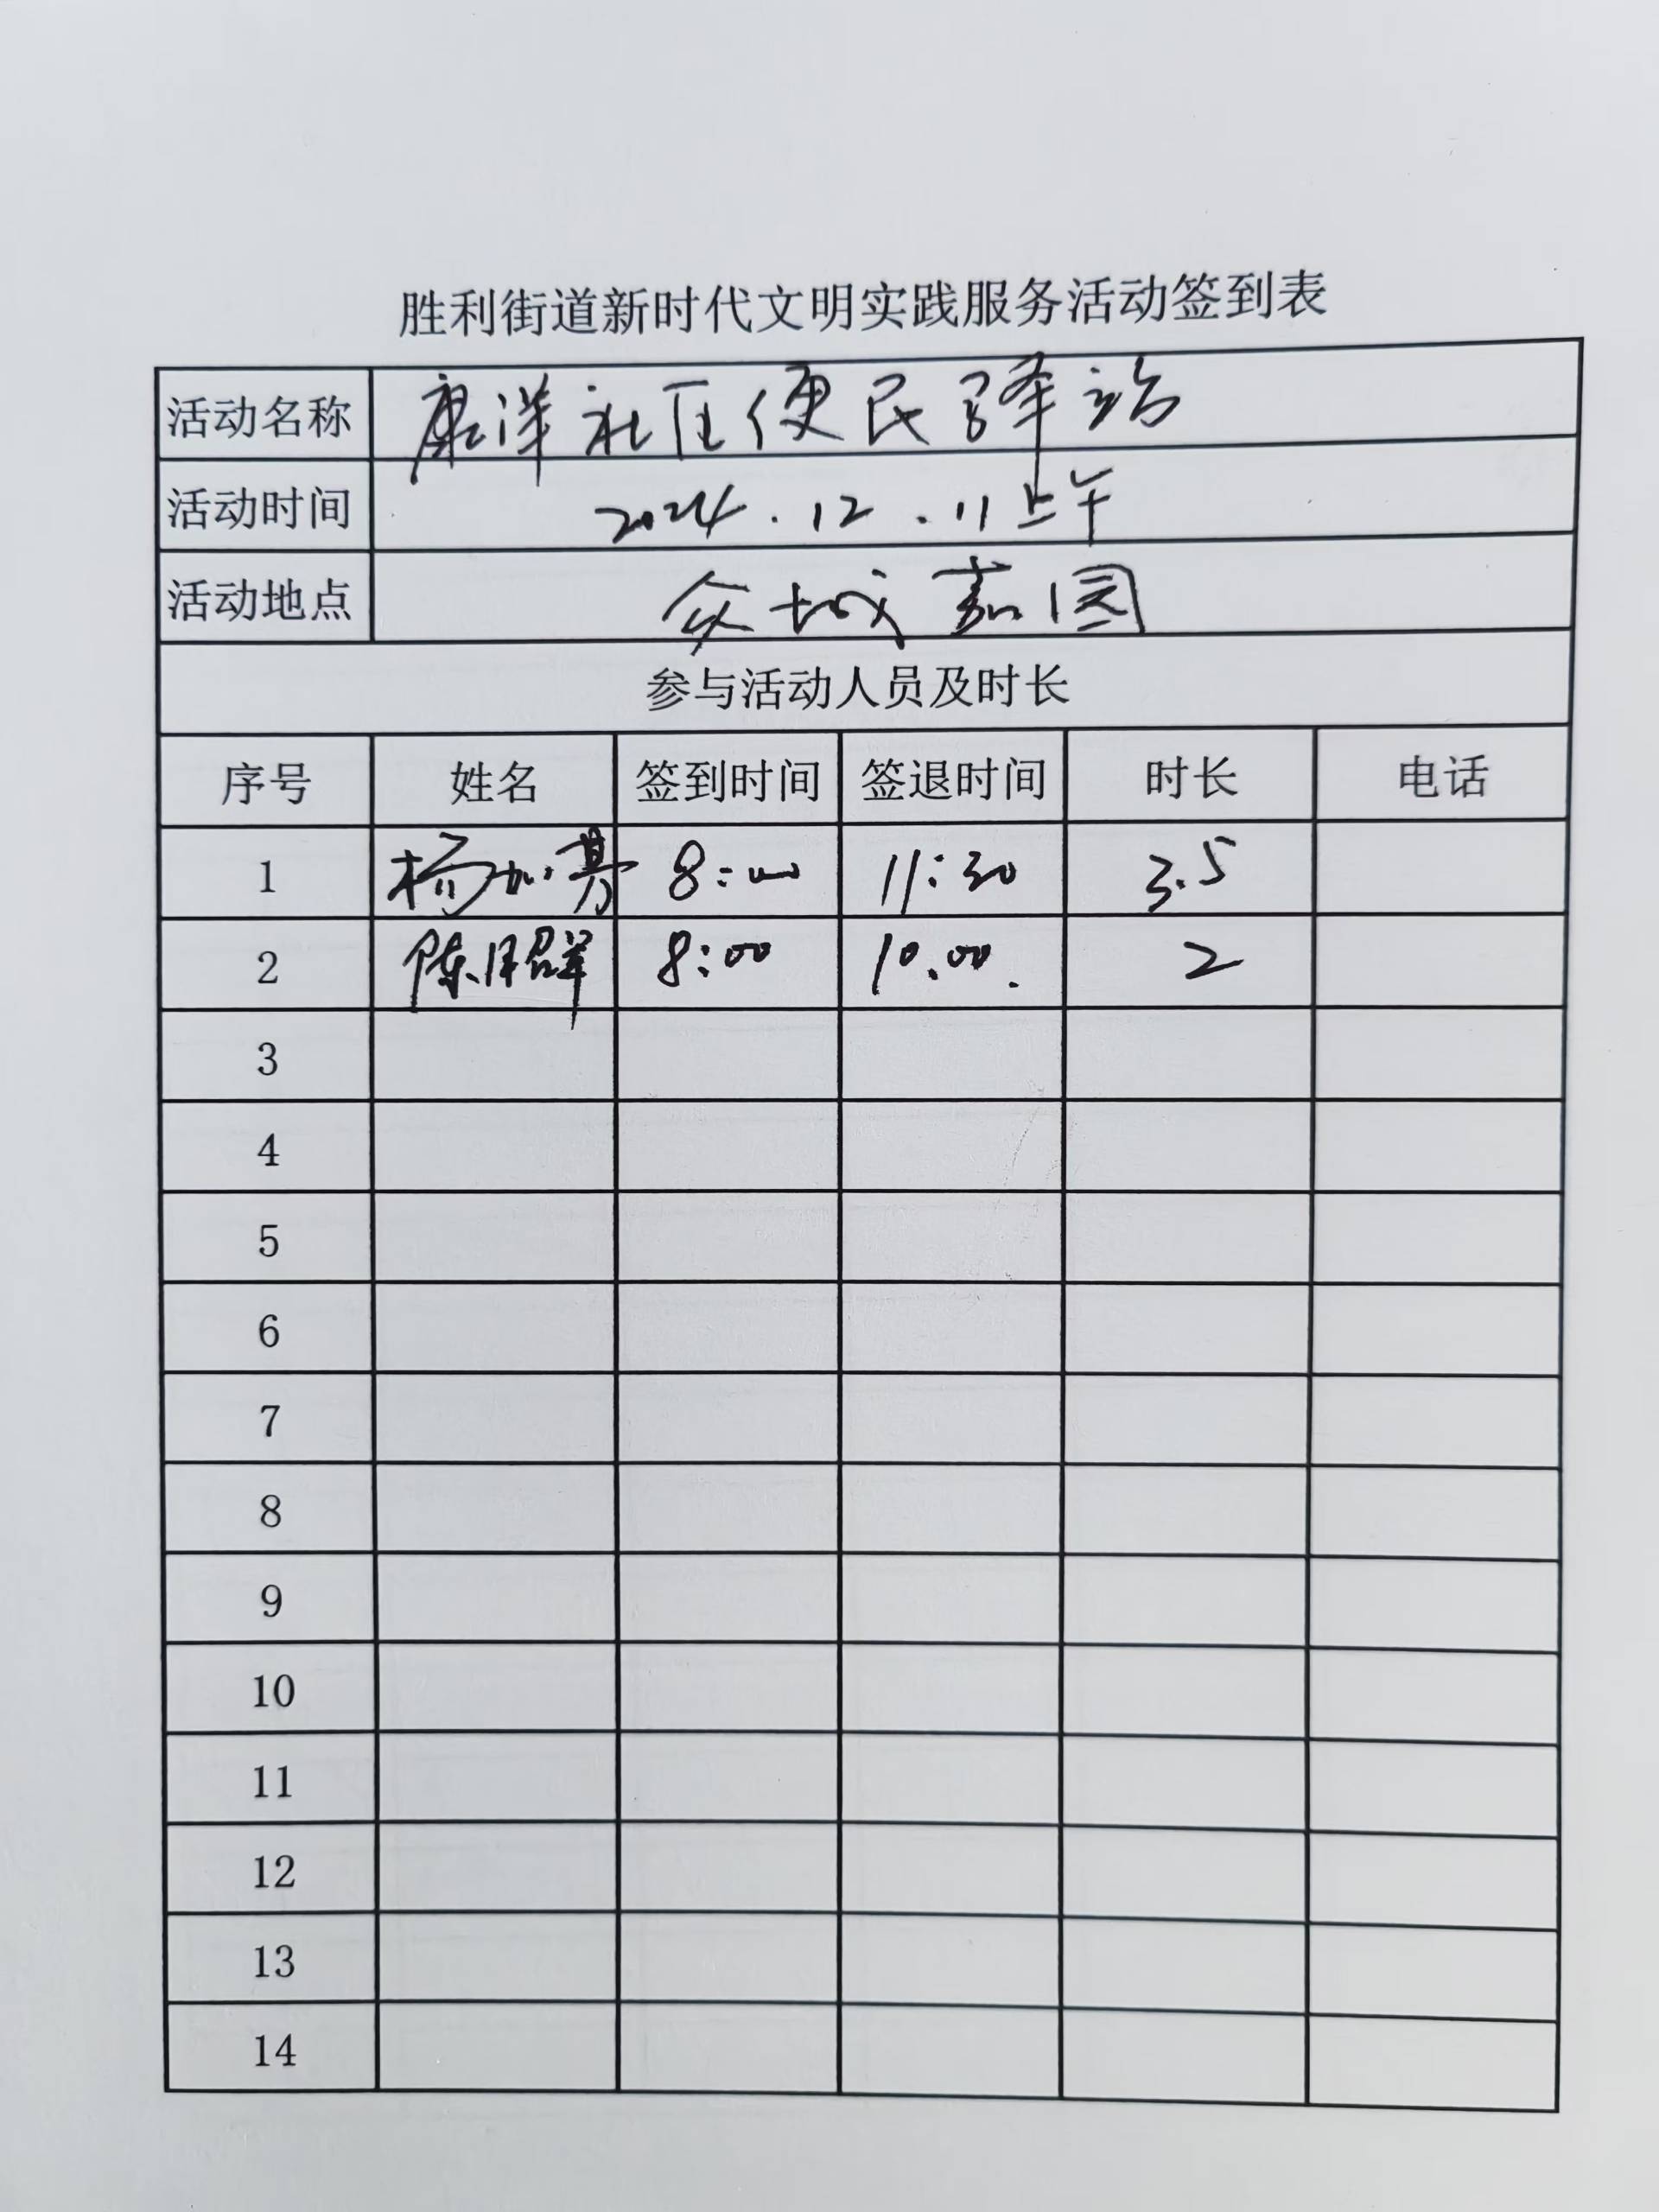 胜利街道新时代文明实践服务活动签到表
活动名称 康洋社区便民驿站
活动时间 2024.12.11上午
活动地点 众城嘉园
参与活动人员及时长
序号 姓名 签到时间 签退时间 时长 电话
1 杨加勇 8:00 11:30 3.5
2 陈群 8:00 10.00. 2
3
4
5
6
7
8
9
10
11
12
13
14